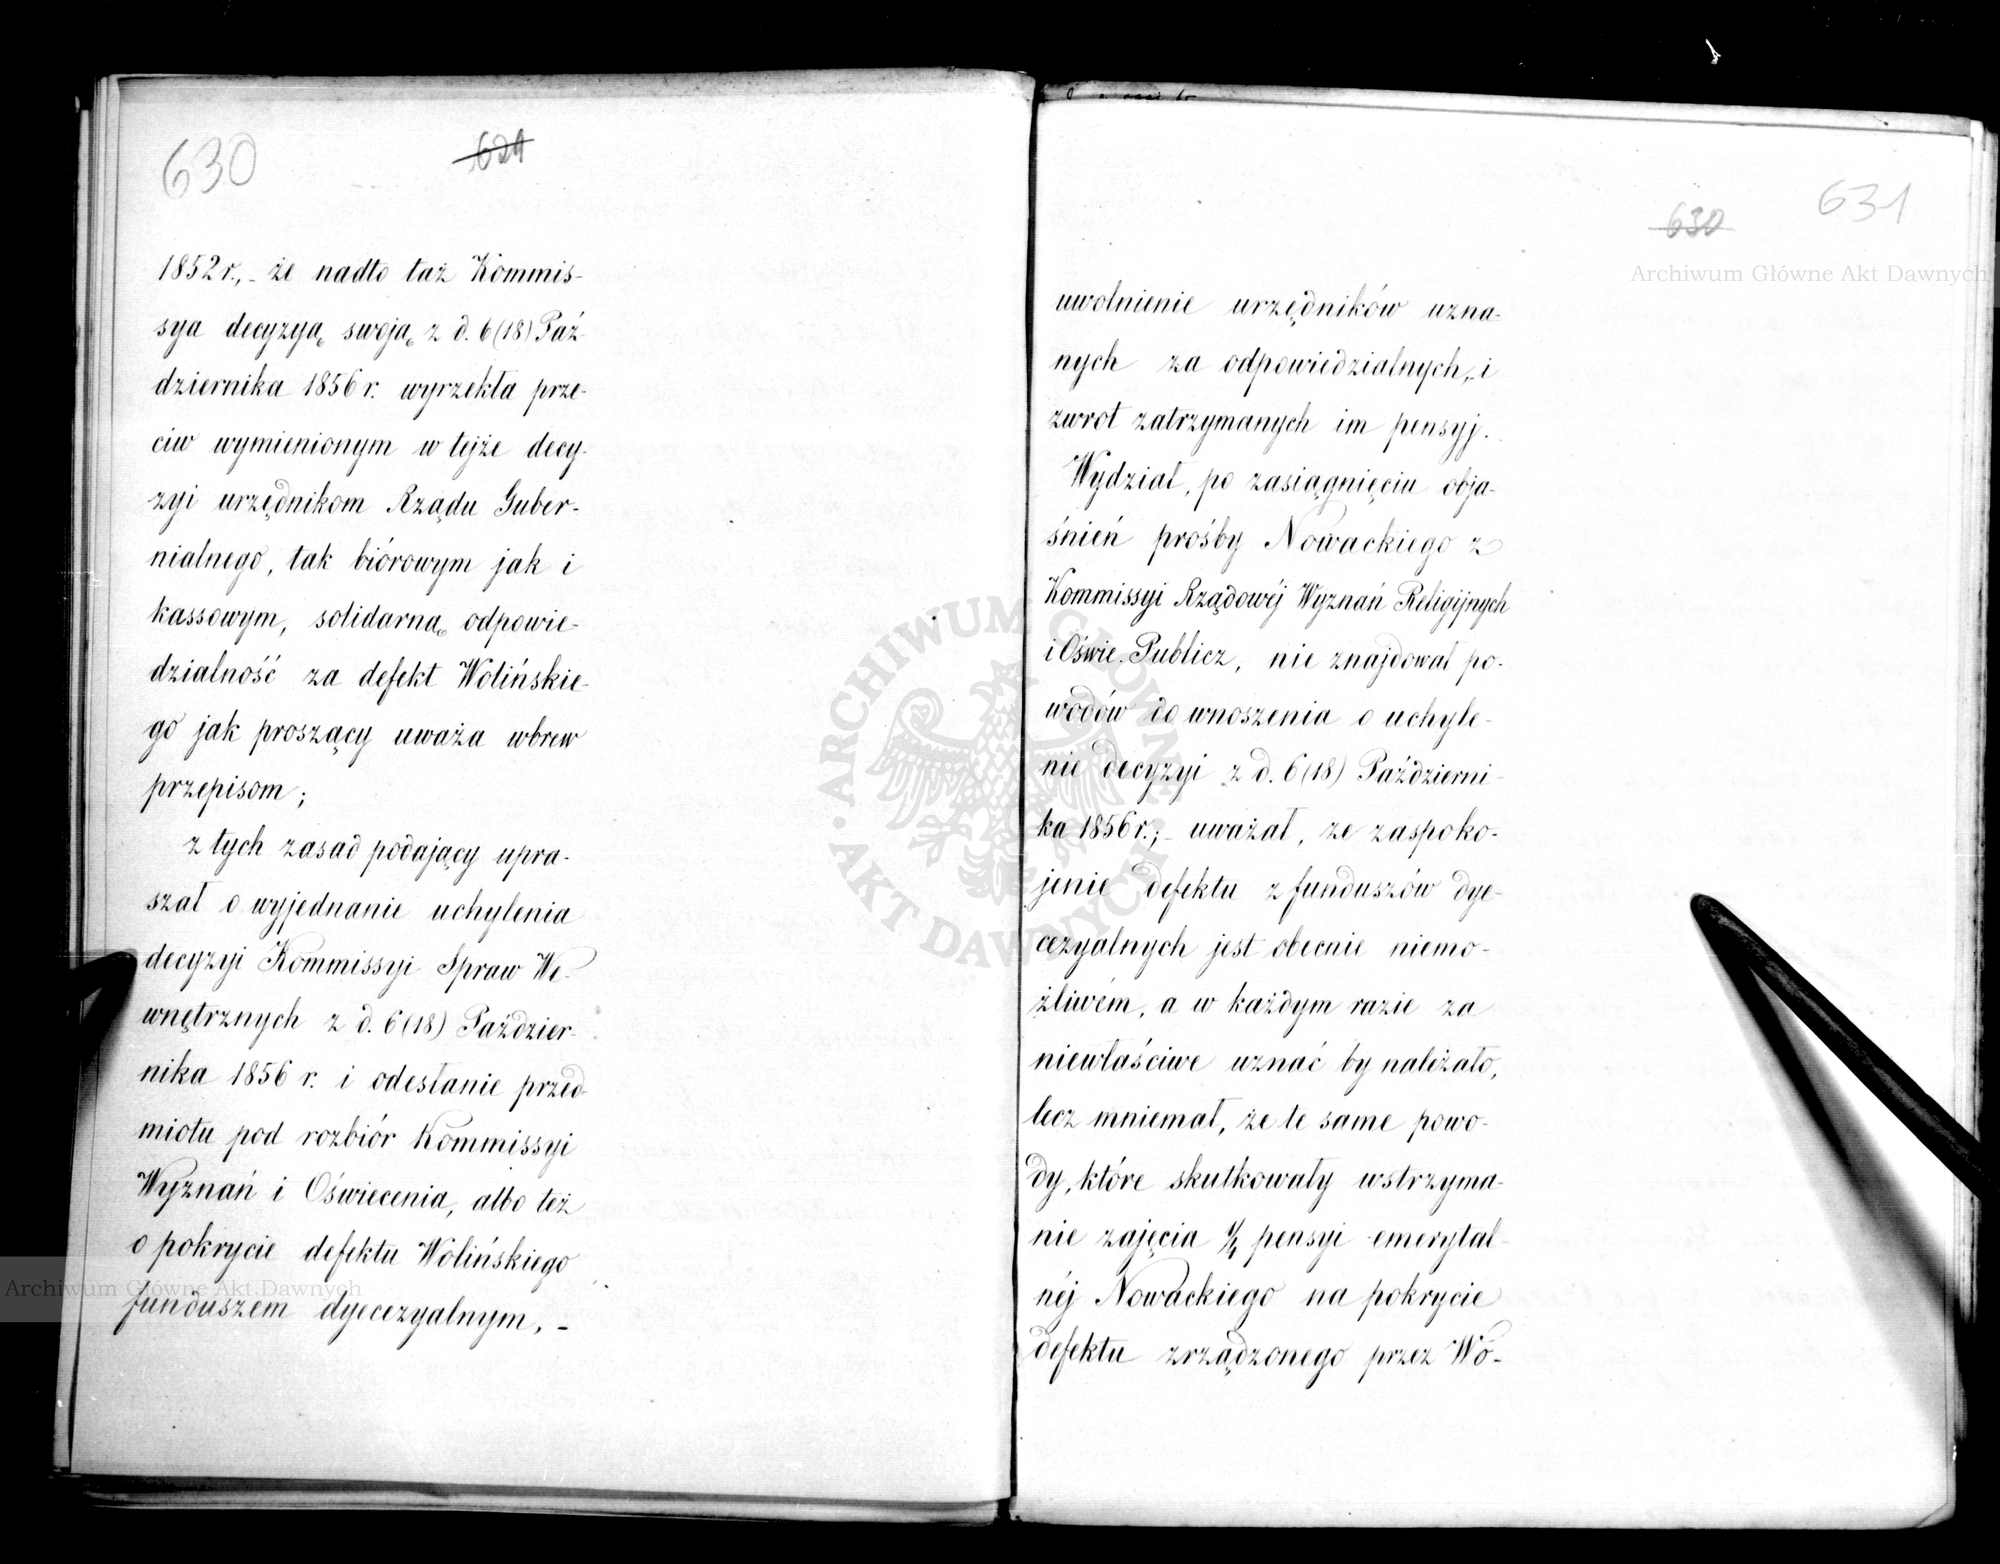 630
629
1852 r., – że nadto taż Kommis-
sya decyzyą swoją z d. 6 (18) Paź-
dziernika 1856 r. wyrzekła prze-
ciw wymienionym w tejże decy-
zyi urzędnikom Rządu Guber-
nialnego, tak biórowym jak i
kassowym, solidarną odpowie-
dzialność za defekt Wolińskie-
go jak proszący uważa wbrew
przepisom;
z tych zasad podający upra-
szał o wyjednanie uchylenia
decyzyi Kommissyi Spraw We-
wnętrznych z d. 6 (18) Paździer-
nika 1856 r. i odesłanie przed-
miotu pod rozbiór Kommissyi
Wyznań i Oświecenia, albo też
o pokrycie defektu Wolińskiego
funduszem dyecezyalnym. –
631
630
Archiwum Główne Akt Dawnych
uwolnienie urzędników uzna-
nych za odpowiedzialnych, i
zwrot zatrzymanych im pensyj.
Wydział, po zasiągnięciu obja-
śnień prośby Nowackiego z
Kommissyi Rządowéj Wyznań Religijnych
i Oświe. Publicz, nie znajdował po-
wodów do wnoszenia o uchyle-
nie decyzyi z d. 6 (18) Październi-
ka 1856 r.; – uważał, że zaspoko-
jenie defektu z funduszów dye-
cezyalnych jest obecnie niemo-
żliwém, a w każdym razie za
niewłaściwe uznać by należało,
lecz mniemał, że te same powo-
dy, które skutkowały wstrzyma-
nie zajęcia 1/4 pensyi emerytal-
néj Nowackiego na pokrycie
defektu zrządzonego przez Wo-
ARCHIWUM GŁÓWNE
AKT DAWNYCH
Archiwum Główne Akt Dawnych